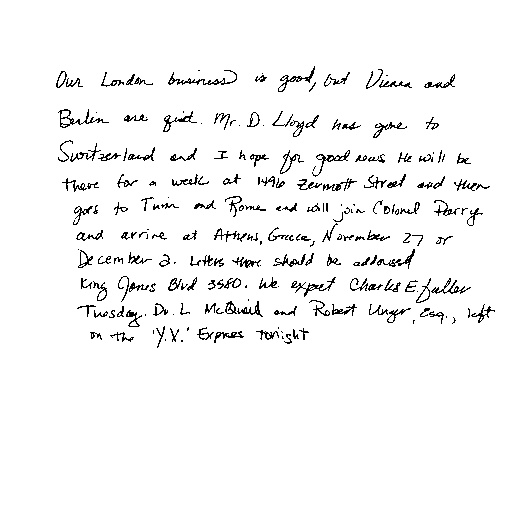 Our London business is good, but Vienna and
Berlin are quiet. Mr. D. Lloyd has gone to
Switzerland and I hope for good news. He will be
there for a week at 1496 Zermott Street and then
goes to Turin and Rome and will join Colonel Parry
and arrive at Athens, Greece, November 27 or
December 2. Letters there should be addressed
King James Blvd 3580. We expect Charles E. Fuller
Tuesday. Dr. L McQuaid and Robert Unger, Esq., left
on the 'Y.X.' Express tonight